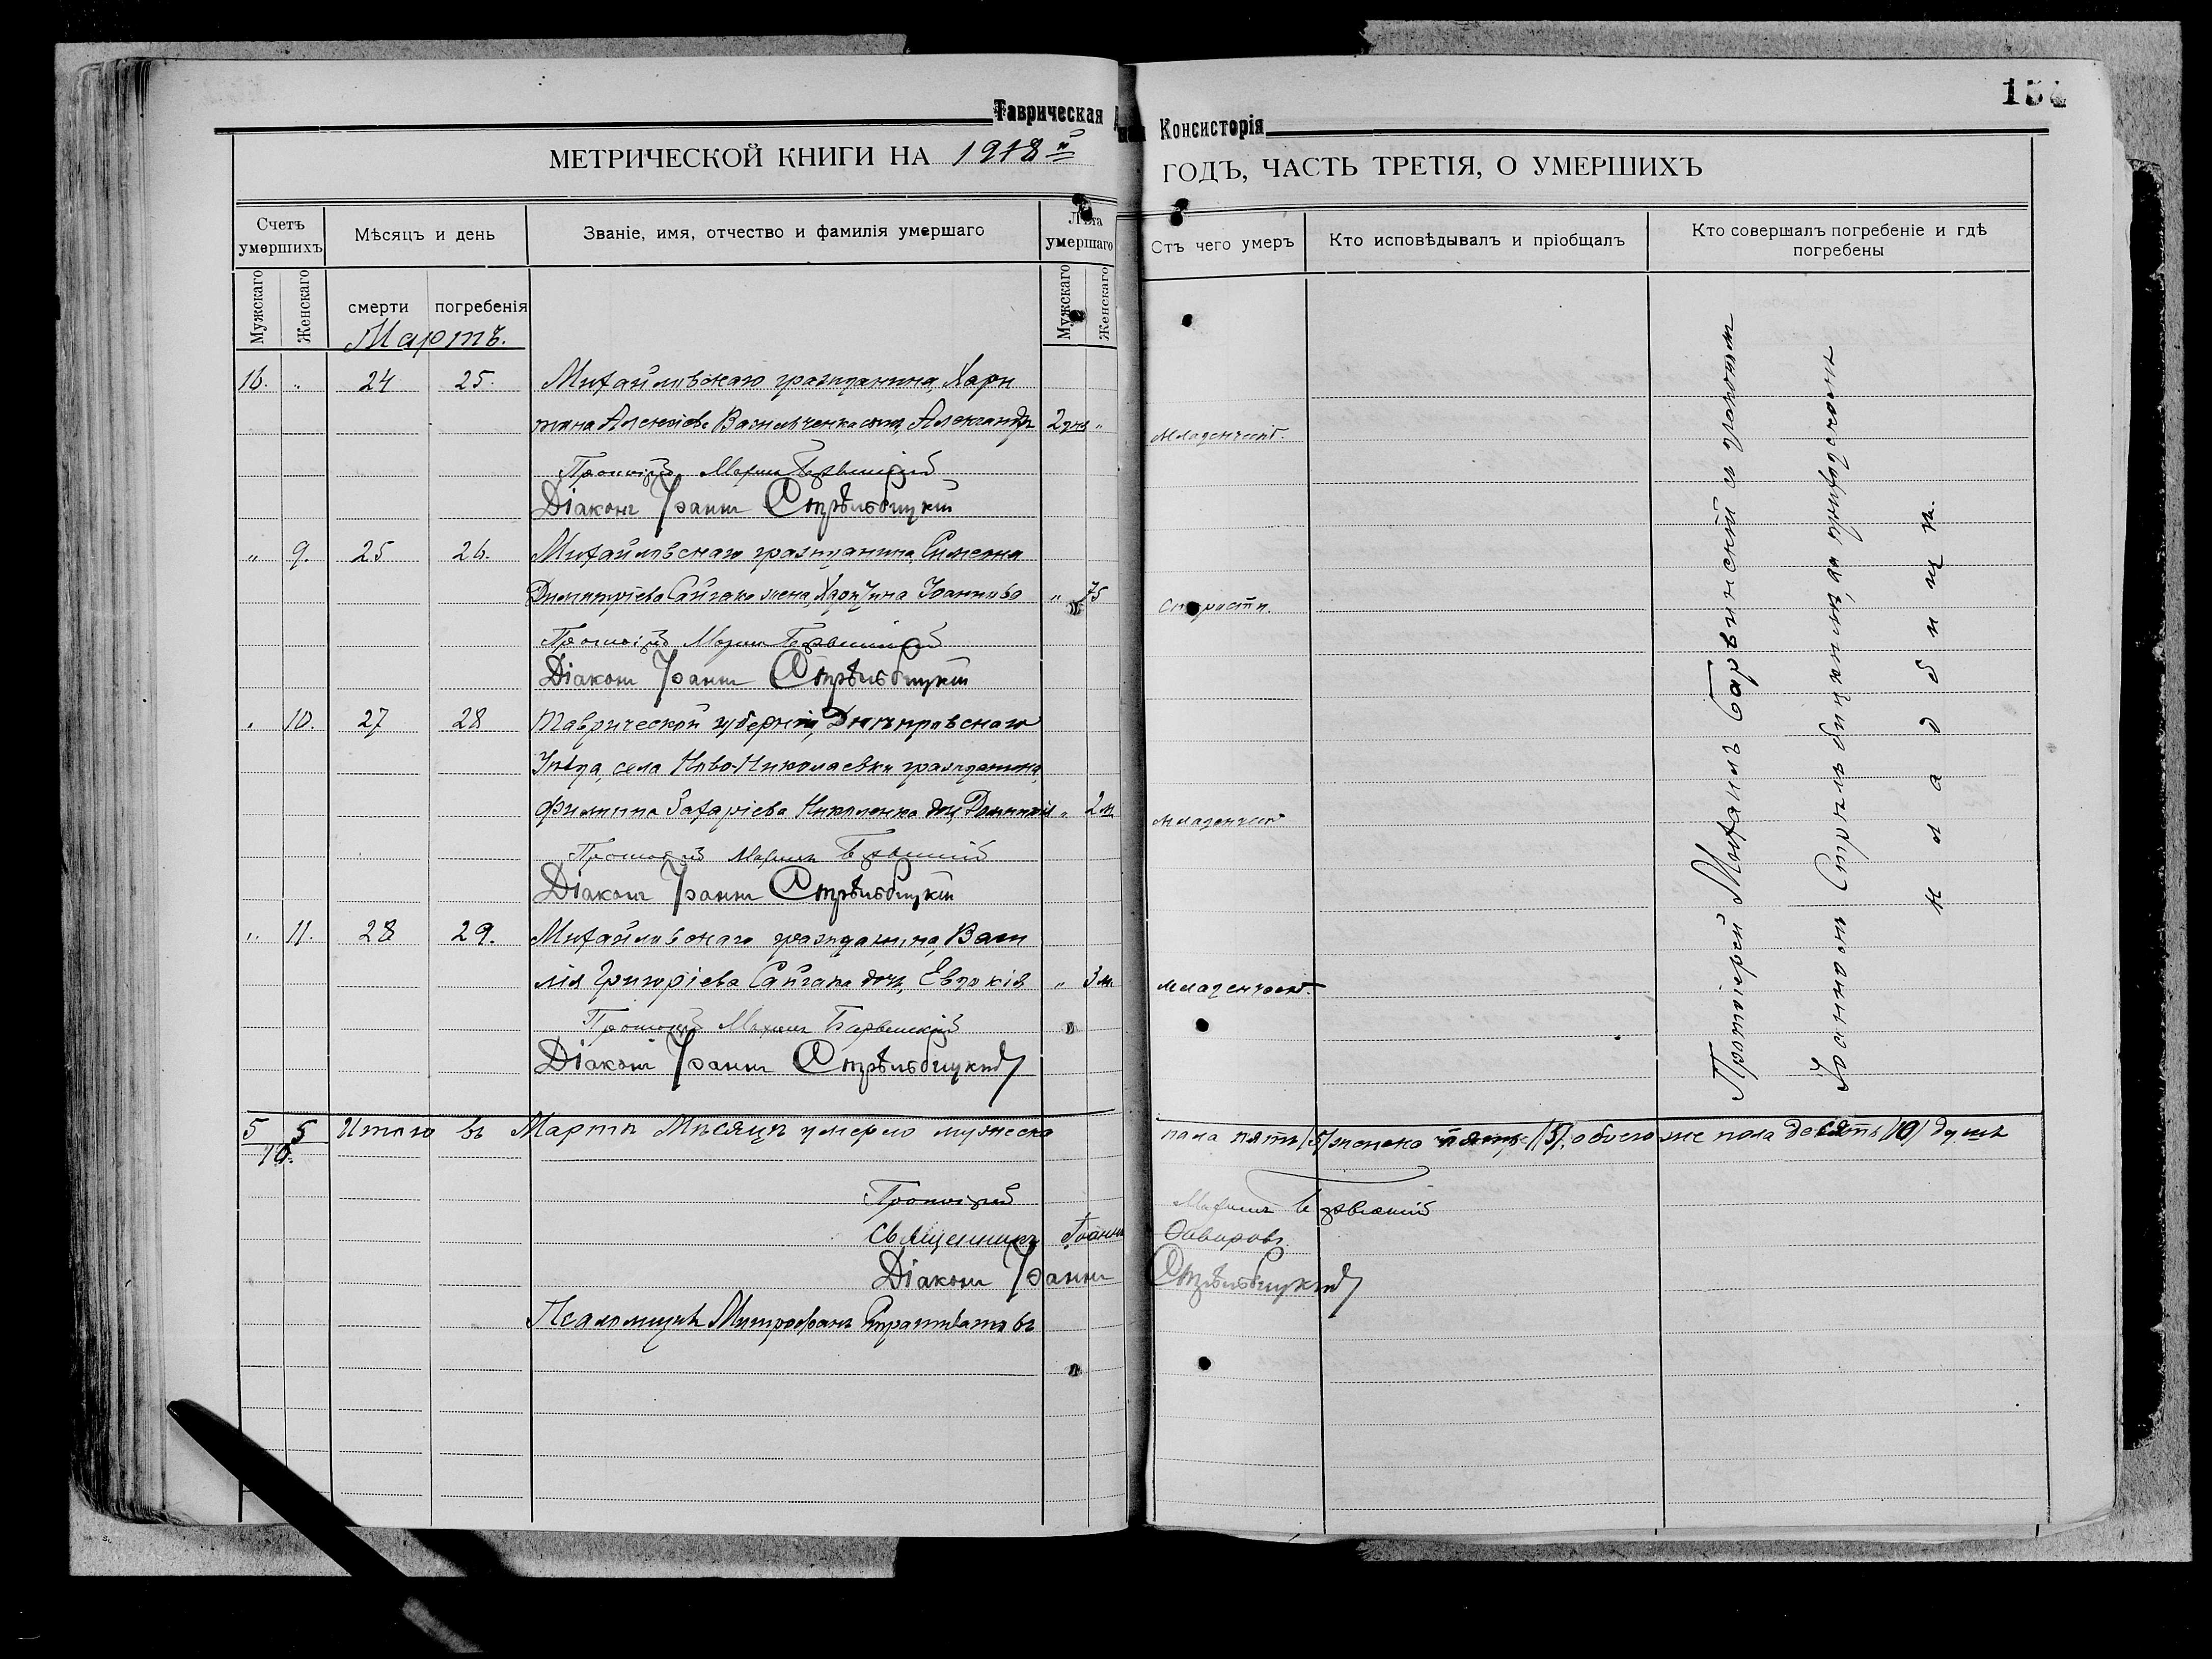 154
Таврическая Консисторія
МЕТРИЧЕСКОЙ КНИГИ НА 1918 й ГОДЪ, ЧАСТЬ ТРЕТІЯ, О УМЕРШИХЪ
Счетъ умершихъ
Мѣсяцъ и день
Званіе, имя, отчество и фамилія умершаго
Лѣта умершаго
Отъ чего умеръ
Кто исповѣдывалъ и пріобщалъ
Кто совершалъ погребеніе и гдѣ погребены
Мужскаго
Женскаго
смерти
погребенія
Мужскаго
Женскаго
Мартъ.
16. " 24 25. Михайловскаго гражданина, Хари
тона Алексіева Васильченка сынъ, Александръ 2 дня " Младенчест.
Протоіерей Михаилъ Барвинскій
Діаконъ Іоаннъ Стрѣльбицкій
" 9. 25 26. Михайловскаго гражданина, Симеона
Димитріева Сайгака жена, Харитина Іоаннова " 75 Старости.
Протоіерей Михаилъ Барвинскій
Діаконъ Іоаннъ Стрѣльбицкій
" 10. 27 28 Таврической губерніи, Днѣпровскаго
Уѣзда, села Ново-Николаевки гражданина,
Филиппа Захаріева Николенка дочь " 2 м младенчест
Протоіерей Михаилъ Барвинскій
Діаконъ Іоаннъ Стрѣльбицкій
" 11. 28 29. Михайловскаго гражданина, Васи
лія Григоріева Сайгака дочь, Евдокія " 3 м. младенчест.
Протоіерей Михаилъ Барвинскій
Діаконъ Іоаннъ Стрѣльбицкій
Протоіерей Михаилъ Барвинскій съ діакономъ
Іоанномъ Стрѣльбицкимъ, на приходскомъ
кладбищѣ.
5 5 Итого въ Мартѣ Мѣсяцѣ умерло мужеска пола пять /5/ женска пять /5/, обоего же пола десять /10/ душъ
10.
Протоіерей Михаилъ Барвинскій
Священникъ Іоаннъ
Діаконъ Іоаннъ Стрѣльбицкій
Псаломщикъ Митрофанъ